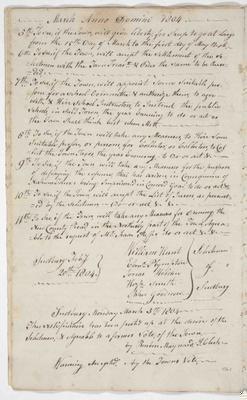 March Anno Domini 1804
5th To see if the Town will give liberty for Sheep to go at large
from the 15th Day of March to the first day of May
6th To see if the Town will accept the Settlement of the
Selectmen with the Town Treasr & Order the same to be
7th To see if the Town will appoint some Suitable
for a School Committee, & authorize them to agree
with & Hire School Instructors to Instruct the publick
Schools in sd Town the year Ensuing to do or act as
the Town shall think best when Met
8th To see if the Town will take any Measures to Hire some
Suitable person or persons for Collector or Collectors to
the Town Taxes the year Ensuing, & Do or act &c
9th To see if the Town will take any Measures for the purpose
of defraying the expense that has arisen in Consequence of
being to do or act &c
10th To see if the Town will accept the List of
by the Selectmen Do or act &c
11th To see if the Town will take any Measures for
New County Road in the Northerly part of the Town
to the request of to do or act &c &c
Sudbury Feby
20th 1804
William Hunt
Jonas
Hopn Smith
Selectmen
of
Sudbury
Sudbury Monday March 5th 1804
This notification has been posted up at the desire of the
Selectmen, & agreeable to a former Vote of the Town
by Reuben Maynard
Warning Accepted by the Town Vote